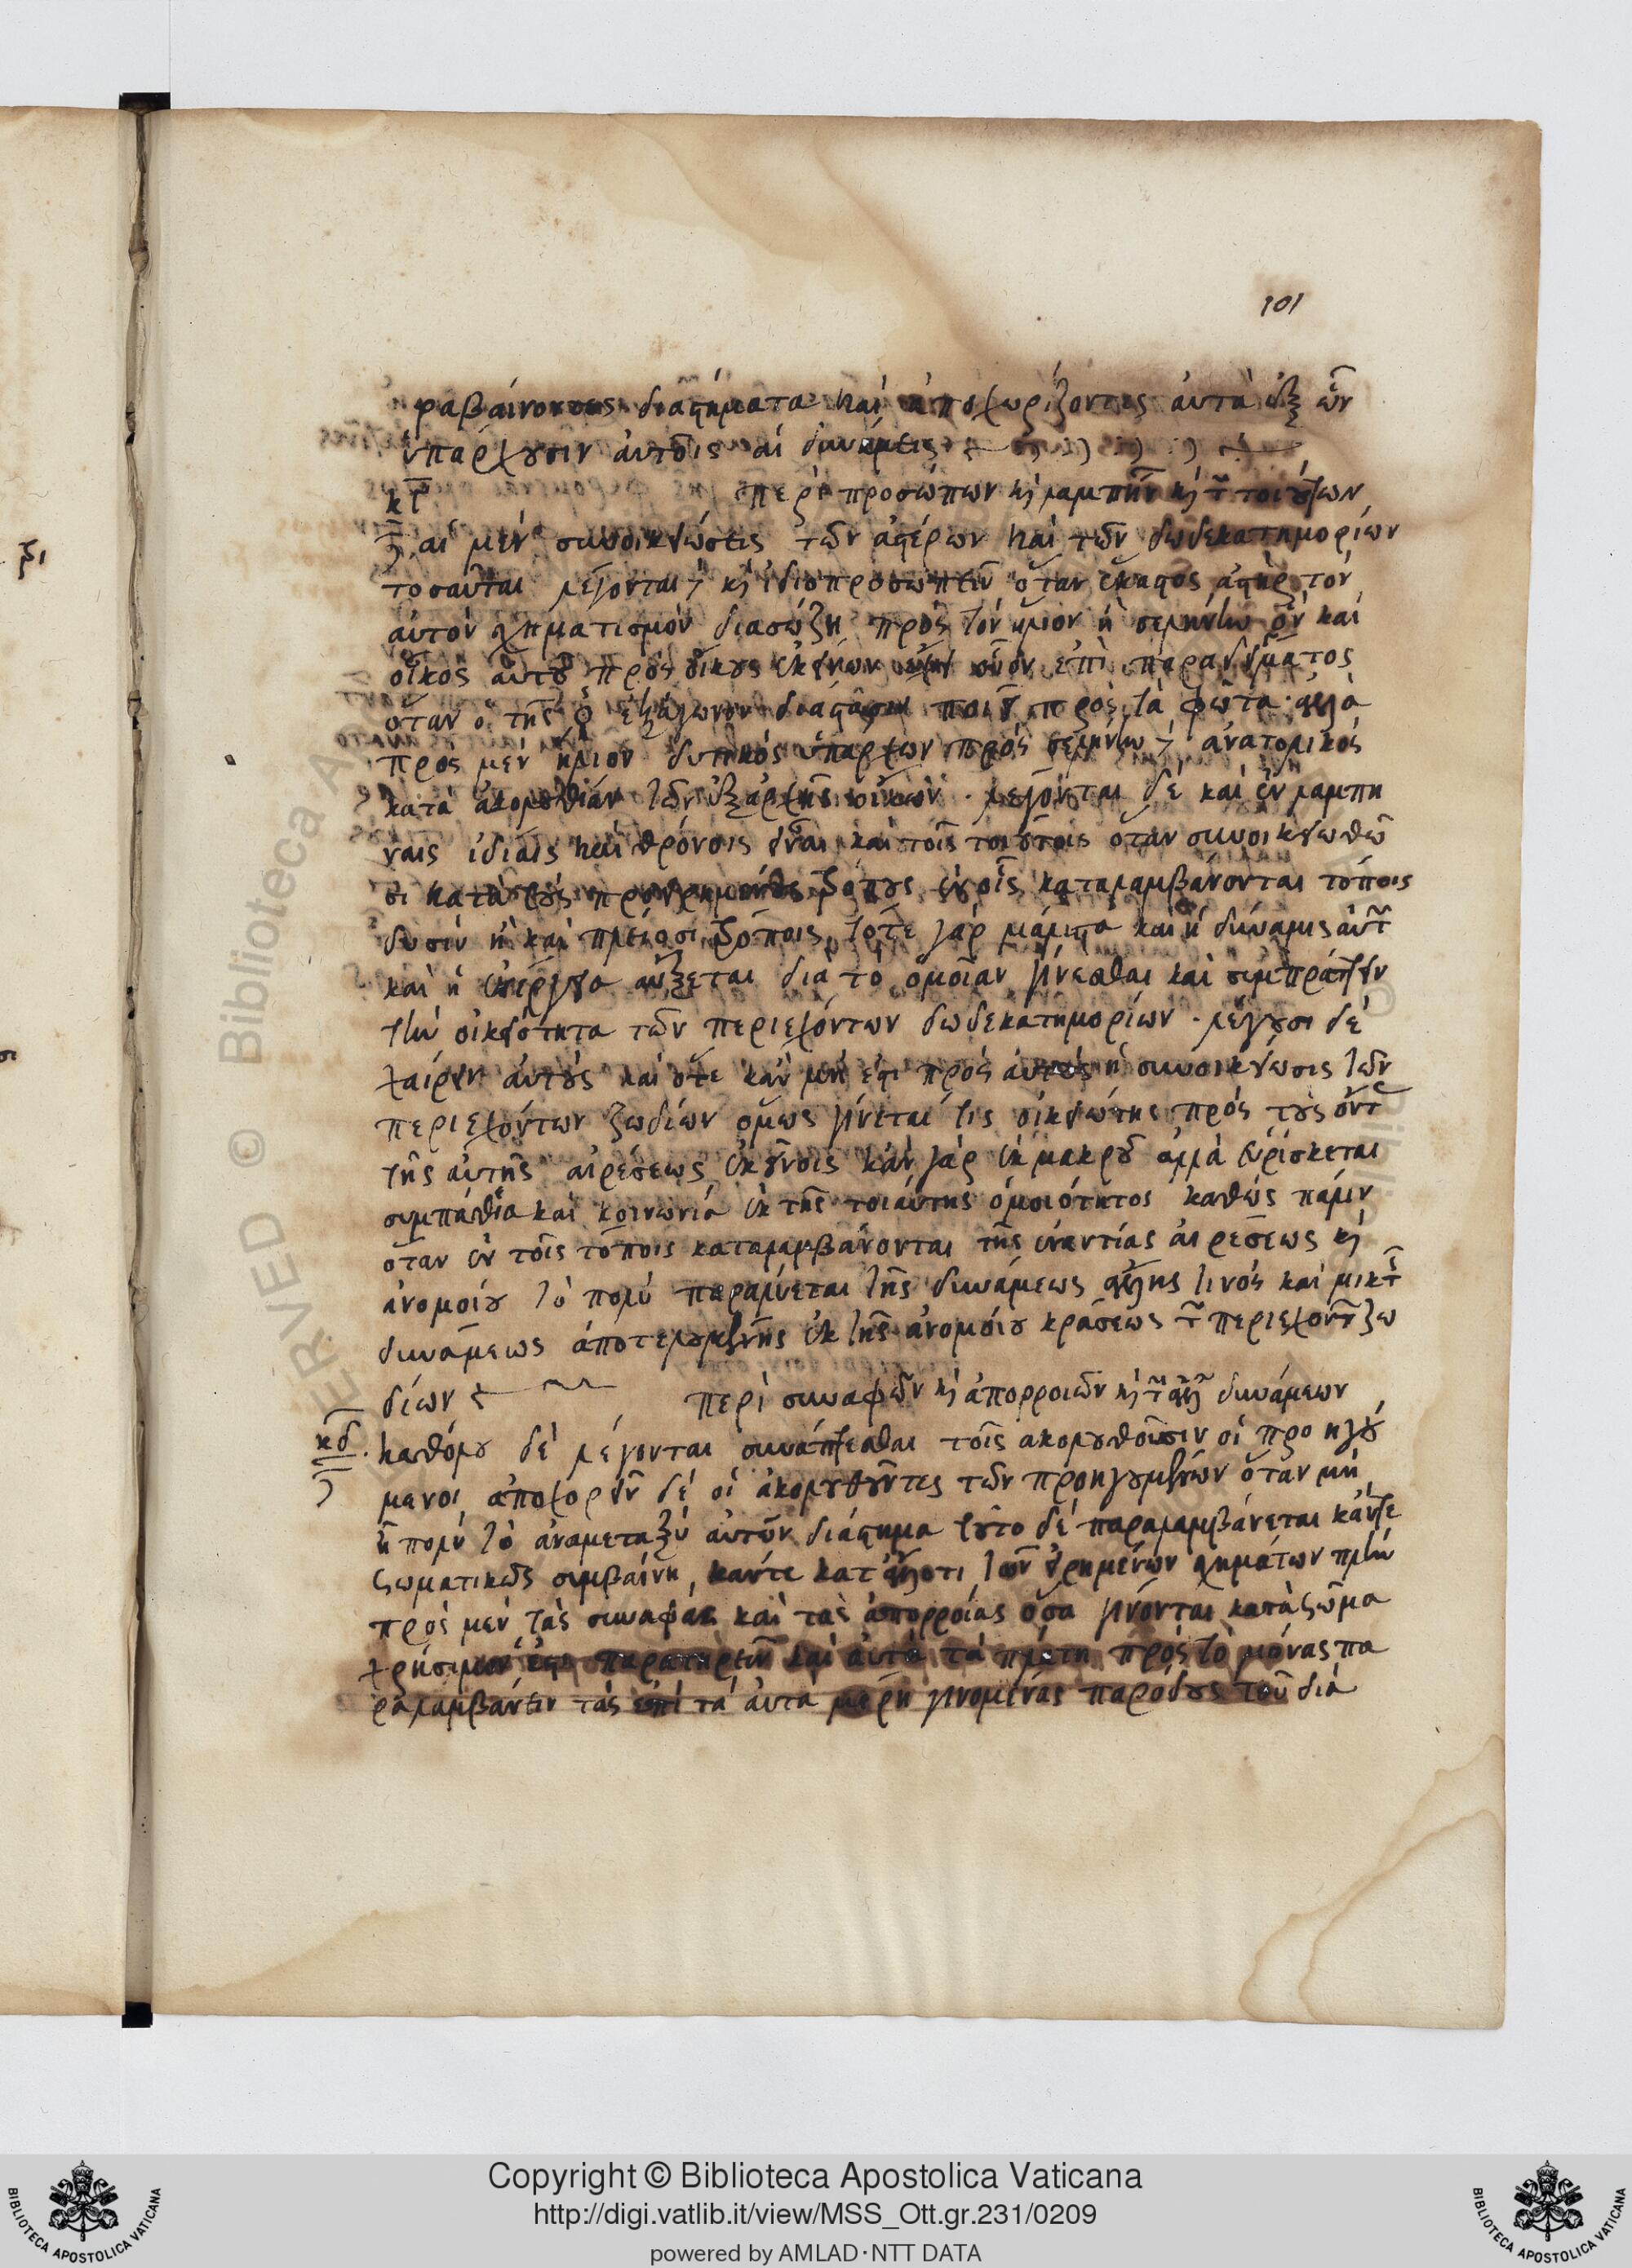 101
ραβαίνοντας διαστήματα καὶ ἀποχωρίζοντες αὐτὰ ἐξ ὧν
ὑπάρχουσιν αὐτοῖς αἱ δυνάμεις
κγ περὶ προσώπων κ λαμπηνῶν κ τ τοιούτων
αἱ μὲν συνοικειώσεις τῶν ἀστέρων καὶ τῶν δωδεκατημορίων
τοσαῦται λέγονται κ ἰδιοπροσωπεῖν ὅταν ἕκαστος ἀστὴρ τὸν
αὐτὸν σχηματισμὸν διασώζη πρὸς τὸν ἥλιον ἢ σελήνην ὃν καὶ
οἶκος αὐτοῦ πρὸς οἴκους ἐκείνων οἷον ἐπὶ παραδείγματος
ὅταν ὁ τῆς ♀ ἑξάγωνον διάστασιν ποιῆ πρὸς τὰ φῶτα ἀλλὰ
πρὸς μὲν ἥλιον δυτικὸς ὑπάρχων πρὸς σελήνην ἀνατολικὸς
κατὰ ἀκολουθίαν τῶν ἐξαρχῆς οἴκων · λέγονται δὲ καὶ ἐν λαμπη
ναις ἰδίαις καὶ θρόνοις εἶναι καὶ τοῖς τοιούτοις ὅταν συνοικειωθῶ
σι κατὰ τοὺς τρόπους ἐν οἷς καταλαμβάνονται τόποις
δυσὶν ἢ καὶ πλείοσι τρόποις τότε γὰρ μάλιστα καὶ ἡ δύναμις αὐτ
καὶ ἡ ἐνέργεια αὔξεται διὰ τὸ ὁμοίαν γίνεσθαι καὶ συμπράττειν
τὴν οἰκειότητα τῶν περιεχόντων δωδεκατημορίων · λέγουσι δὲ
χαίρειν αὐτοὺς καὶ ὅτε κἂν μὴ ἐστι πρὸς αὐτοὺς ἡ συνοικείωσις τῶν
περιεχόντων ζωδίων ὅμως γίνεται τις οἰκειώτης πρὸς τοὺς ὄντ
τῆς αὐτῆς αἱρέσεως ἐκείνοις κἂν γὰρ ἐκ μακροῦ ἀλλὰ εὑρίσκεται
συμπάθεια καὶ κοινωνία ἐκ τῆς τοιαύτης ὁμοιότητος καθὼς πάλιν
ὅταν ἐν τοῖς τόποις καταλαμβάνονται τῆς ἐναντίας αἱρέσεως κ
ἀνομοίου τὸ πολὺ παραλύεται τῆς δυνάμεως ἄλλης τινὸς καὶ μικτ
δυνάμεως ἀποτελουμένης ἐκ τῆς ἀνομοίου κράσεως τ περιεχόντ ζω
δίων περὶ συναφῶν κ ἀπορροιῶν κ τ ἄλλ δυνάμεων
κδ καθόλου δὲ λέγονται συνάπτεσθαι τοῖς ἀκολουθοῦσιν οἱ προηγού
μενοι ἀποχορεῖν δὲ οἱ ἀκολουθοῦντες τῶν προηγουμένων ὅταν μὴ
ἦ πολὺ τὸ ἀναμεταξὺ αὐτῶν διάστημα τοῦτο δὲ παραλαμβάνεται κάντε
σωματικῶς συμβαίνη, κάντε κατ ἄλλοτι τῶν εἰρημένων σχημάτων πλὴν
πρὸς μὲν τὰς συναφὰς καὶ τὰς ἀπορροίας ὅσα γίνονται κατὰ σῶμα
χρήσιμον ἐστι παρατηρεῖν καὶ αὐτὰ τὰ πλάτη πρὸς τὸ μόνας πα
ραλαμβάνειν τὰς ἐπὶ τὰ αὐτὰ μέρη γινομένας παρόδους τοῦ διὰ
Copyright © Biblioteca Apostolica Vaticana
http://digi.vatlib.it/view/MSS_Ott.gr.231/0209
powered by AMLAD·NTT DATA